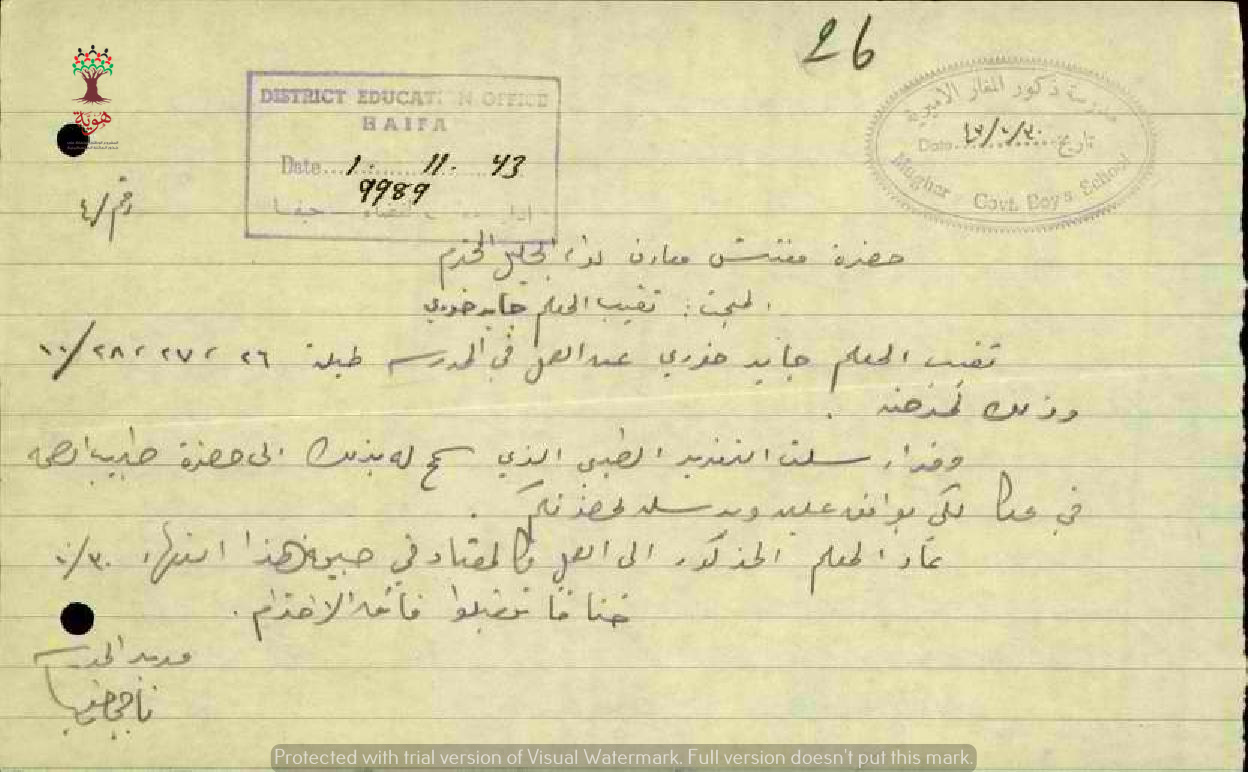 26
DISTRICT EDUCATION OFFICE
HAIFA
Date... 1. 11. 43
9989
حيفا
مدرسة ذكور المغار الاميرية
Date تاريخ ٤٣/١٠/٣٠
Mughar Govt. Boys School
هوية
رقم /٤
حضرة مفتش معارف لواء الجليل المحترم
المبحث : تغيب المعلم جايد خوري
تغيب المعلم جايد خوري عن العمل في المدرسة طيلة ٢٦ ، ٢٧ ، ٢٨/١٠
وذلك لمرضه .
وقد ارسلت التقرير الطبي الذي سمح له بذلك الى حضرة طبيب الصحة
في عكا لكي يوافق عليه ويرسله لحضرتكم .
عاد المعلم المذكور الى العمل كالمعتاد في صبيحة هذا النهار ١٠/٣٠
ختاما تفضلوا فائق الاحترام .
مدير المدرسة
ناجي
Protected with trial version of Visual Watermark. Full version doesn't put this mark.